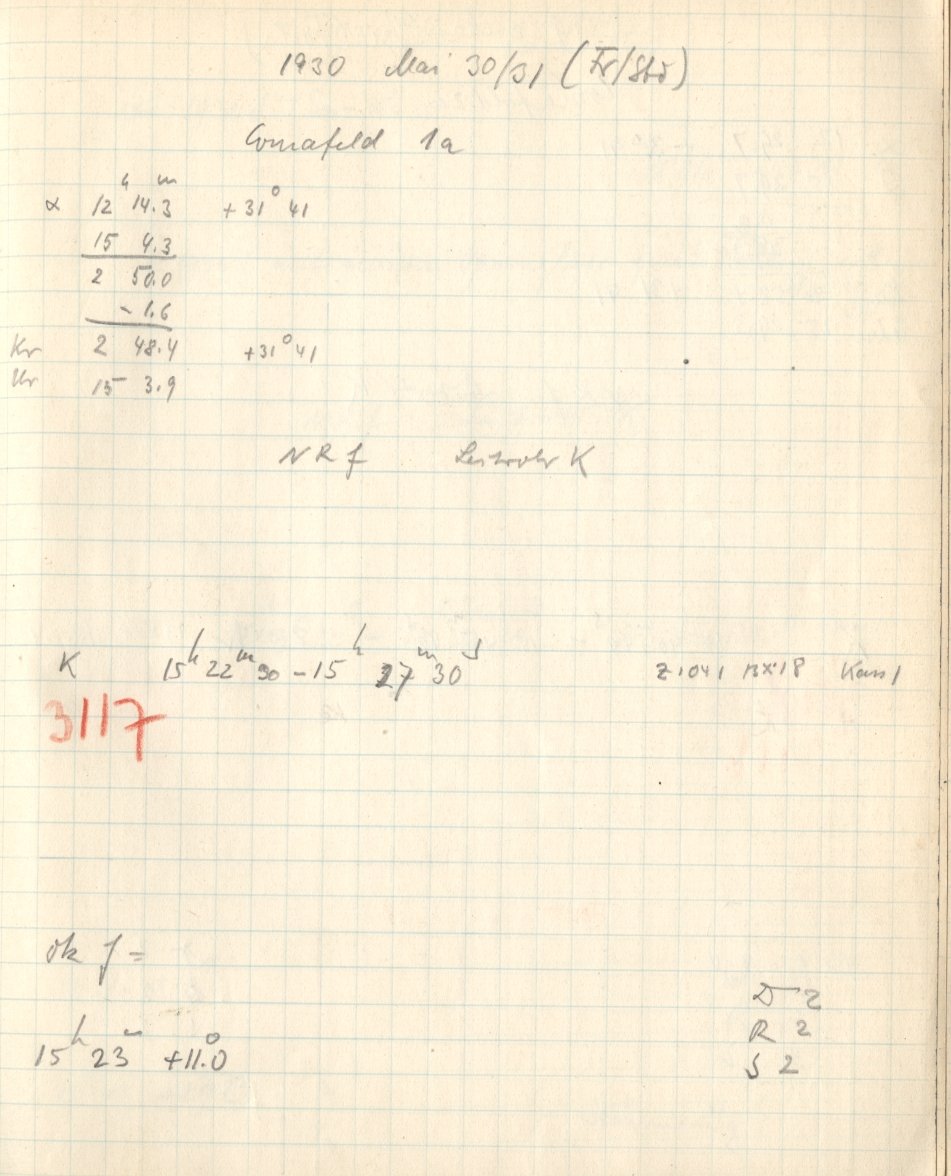 1930 Mai 30/31 (Fr/Sbd)
Comafeld 1a
α 12ʰ 14.3ᵐ +31° 41
15 4.3
2 50.0
- 1.6
Kr 2 48.4 +31° 41
Ur 15 3.9
N R f Leitrohr K
K 15ʰ 22ᵐ 30 - 15ʰ 27ᵐ 30ˢ Z 1041 Kass 1
3117
ok f =
15ʰ 23ᵐ +11.0°
D 2
R 2
S 2